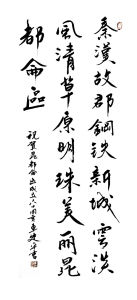 秦漢故郡鋼铁新城雲淡
風清草原明珠美丽昆
都侖區
祝賀昆都侖成立六十周年